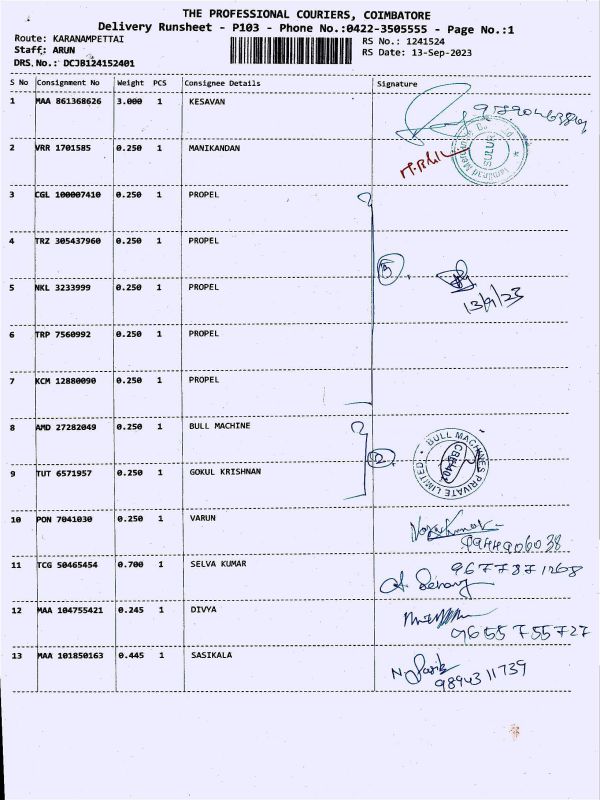 THE PROFESSIONAL COURIERS, COIMBATORE
Delivery Runsheet - P103 - Phone No.:0422-3505555 - Page No.:1
Route: KARANAMPETTAI
RS No.: 1241524
Staff: ARUN
RS Date: 13-Sep-2023
DRS.No.: DCJB124152401
S No Consignment No Weight PCS Consignee Details Signature
1 MAA 861368626 3.000 1 KESAVAN
2 VRR 1701585 0.250 1 MANIKANDAN
SULUR
3 CGL 100007410 0.250 1 PROPEL
4 TRZ 305437960 0.250 1 PROPEL
5
5 NKL 3233999 0.250 1 PROPEL
13/9/23
6 TRP 7560992 0.250 1 PROPEL
7 KCM 12880090 0.250 1 PROPEL
8 AMD 27282049 0.250 1 BULL MACHINE
2
BULL MACHINES PRIVATE LIMITED
9 TUT 6571957 0.250 1 GOKUL KRISHNAN
10 PON 7041030 0.250 1 VARUN
9944906038
11 TCG 50465454 0.700 1 SELVA KUMAR
9677871268
12 MAA 104755421 0.245 1 DIVYA
9655755727
13 MAA 101850163 0.445 1 SASIKALA
9894311739